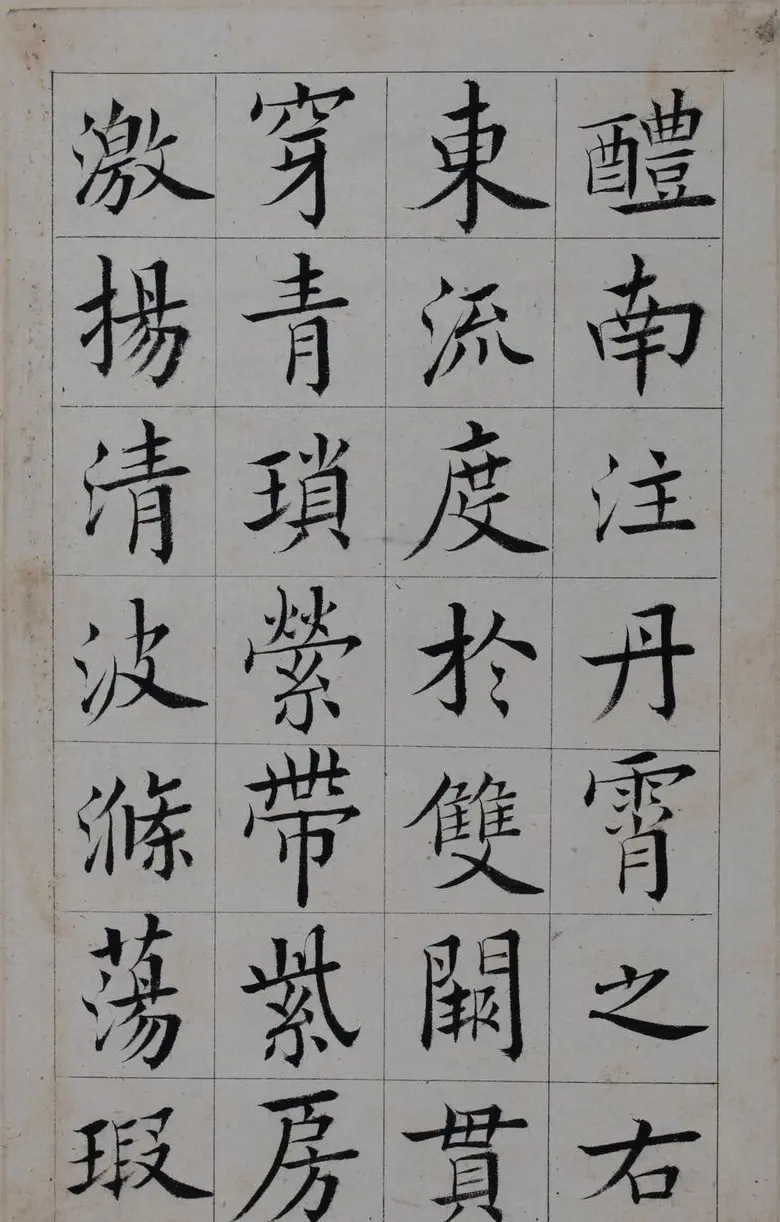 醴南注丹霄之右
東流度於雙闕貫
穿青瑣縈帶紫房
激揚清波滌蕩瑕